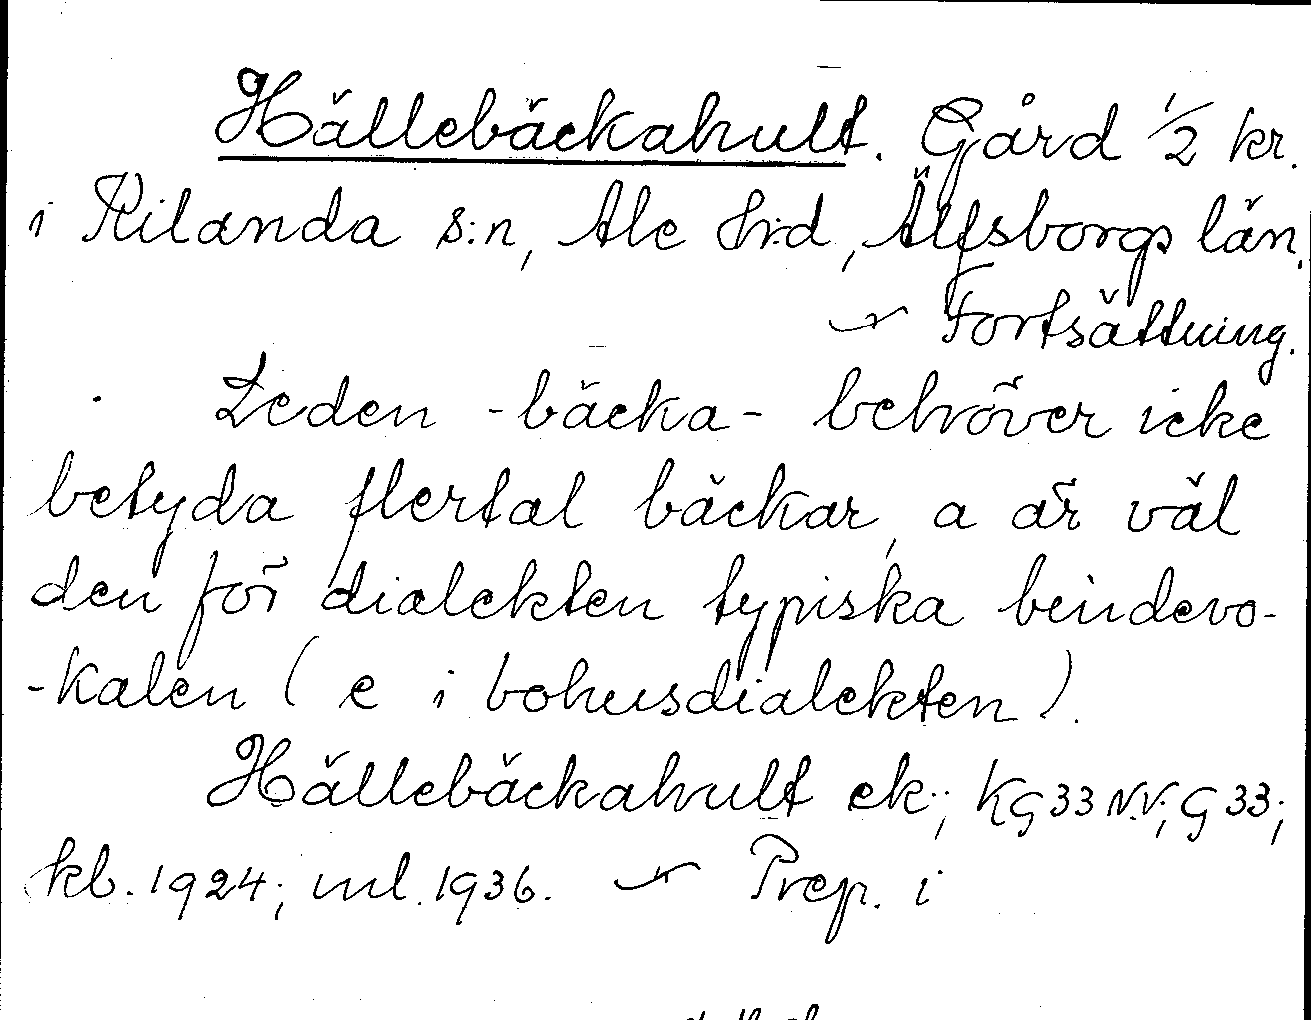 Hällebäckahult. Gård 1/2 kr.
i Kilanda s:n, Ale hrd, Älfsborgs län.
Fortsättning.
Leden -bäcka- behöver icke
betyda flertal bäckar, a är väl
den för dialekten typiska bindevo-
-kalen (e i bohusdialekten).
Hällebäckahult ek.; KG 33 NV; G 33;
kb. 1924; ml. 1936. Prep. i